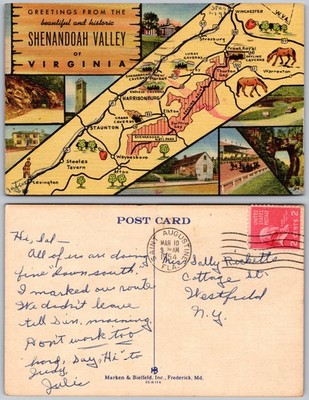 GREETINGS FROM THE
beautiful and historic
SHENANDOAH VALLEY
OF
VIRGINIA
WINCHESTER
Strasburg
Front Royal
Warrenton
HARRISONBURG
STAUNTON
Waynesboro
Steeles
Tavern
Lexington
POST CARD
SAINT AUGUSTINE
MAR 10
AM
1954
FLA.
UNITED STATES POSTAGE
2 CENTS 2
Hi, Sal -
All of us are doing
fine "down south."
I marked our route
We didn't leave
tell Sun. morning.
Don't work too
hard. Say, "Hi" to
Judy
Julie
Miss Sally Ricketts
Cottage St.
Westfield
N.Y.
MB
Marken & Bielfeld, Inc., Frederick, Md.